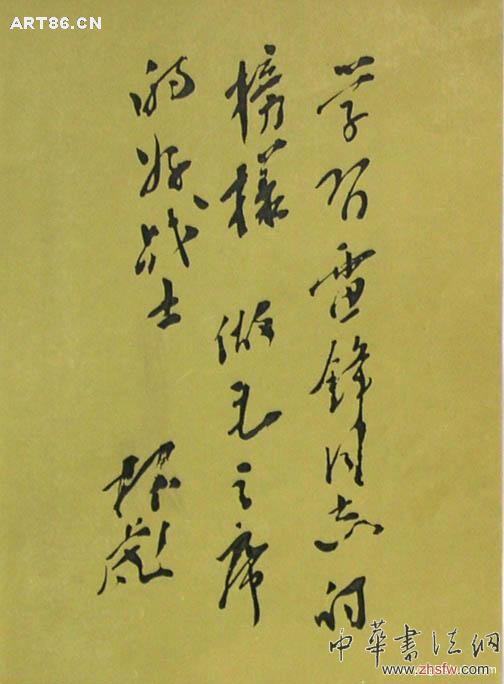 ART86.CN
学習雷锋同志的
榜樣 做毛主席
的好战士
林彪
中華書法網
www.zhsfw.com